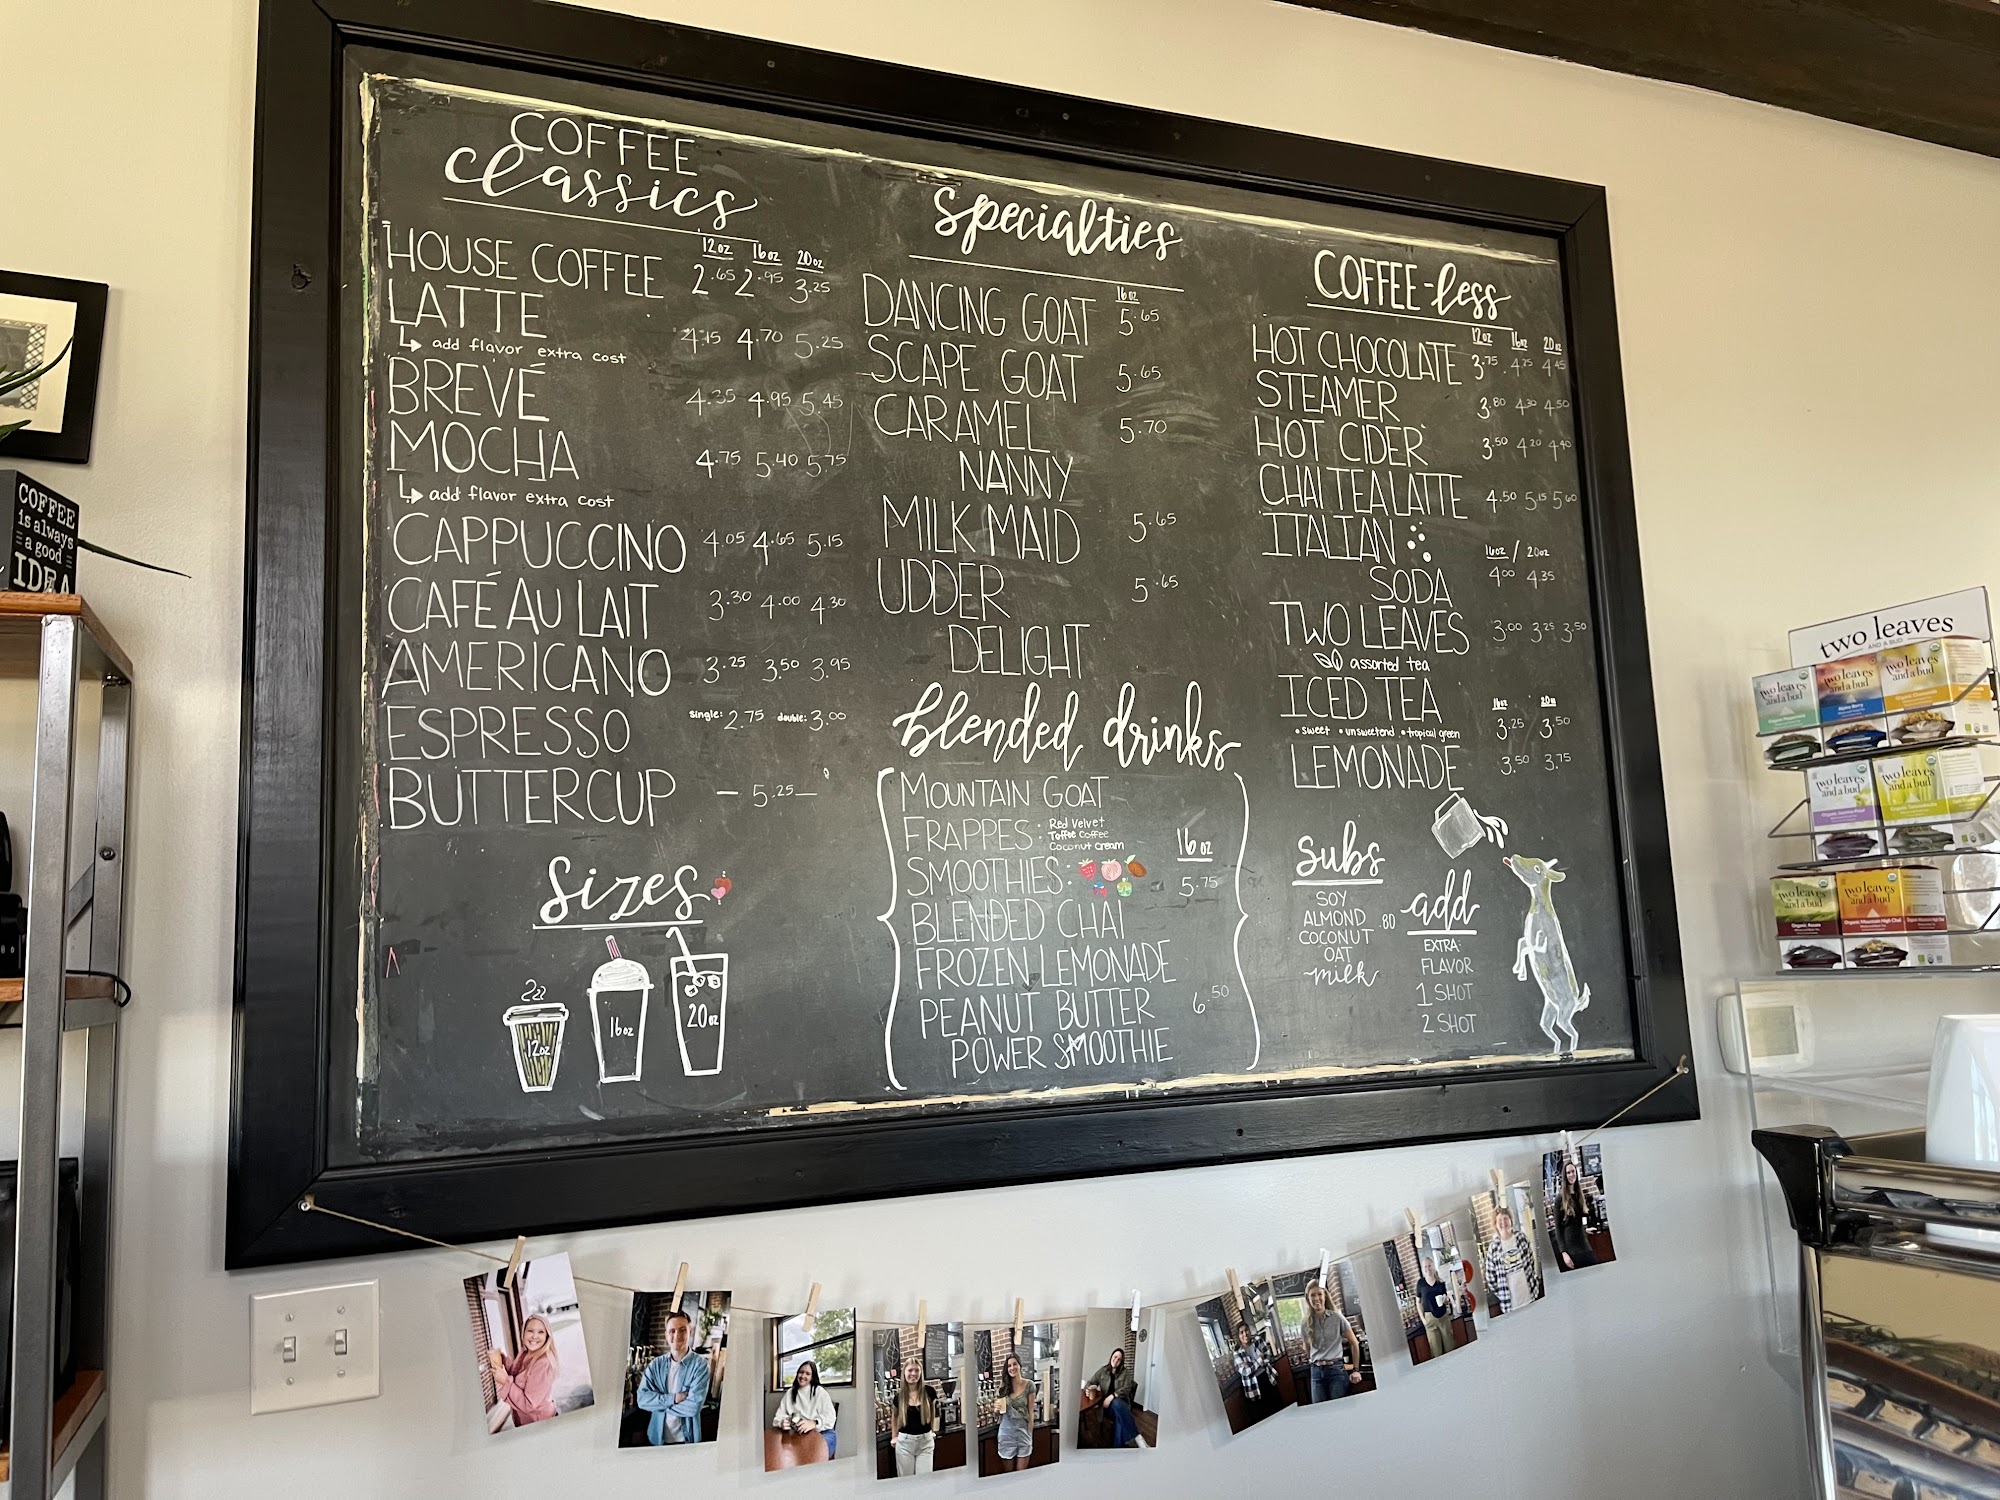 COFFEE
classics
12oz 16oz 20oz
HOUSE COFFEE 2.65 2.95 3.25
LATTE 4.15 4.70 5.25
add flavor extra cost
BREVÉ 4.35 4.95 5.45
MOCHA 4.75 5.40 5.75
add flavor extra cost
CAPPUCCINO 4.05 4.65 5.15
CAFÉ AU LAIT 3.30 4.00 4.30
AMERICANO 3.25 3.50 3.95
ESPRESSO single: 2.75 double: 3.00
BUTTERCUP — 5.25 —
sizes
12oz
16oz
20oz
specialties
16oz
DANCING GOAT 5.65
SCAPE GOAT 5.65
CARAMEL 5.70
NANNY
MILK MAID 5.65
UDDER 5.65
DELIGHT
blended drinks
MOUNTAIN GOAT
FRAPPES: Red Velvet
Toffee Coffee
Coconut Cream
16oz
SMOOTHIES: 5.75
BLENDED CHAI
FROZEN LEMONADE
PEANUT BUTTER 6.50
POWER SMOOTHIE
COFFEE-less
12oz 16oz 20oz
HOT CHOCOLATE 3.75 4.25 4.45
STEAMER 3.80 4.30 4.50
HOT CIDER 3.50 4.20 4.40
CHAI TEA LATTE 4.50 5.15 5.60
ITALIAN 16oz / 20oz
SODA 4.00 4.35
TWO LEAVES 3.00 3.25 3.50
assorted tea
16oz 20oz
ICED TEA 3.25 3.50
• sweet • unsweetend • tropical green
LEMONADE 3.50 3.75
subs
SOY
ALMOND .80
COCONUT
OAT
milk
add
EXTRA:
FLAVOR
1 SHOT
2 SHOT
COFFEE
is always
a good
IDEA
two leaves
AND A BUD
two leaves
and a bud
two leaves
and a bud
two leaves
and a bud
two leaves
and a bud
two leaves
and a bud
two leaves
and a bud
two leaves
and a bud